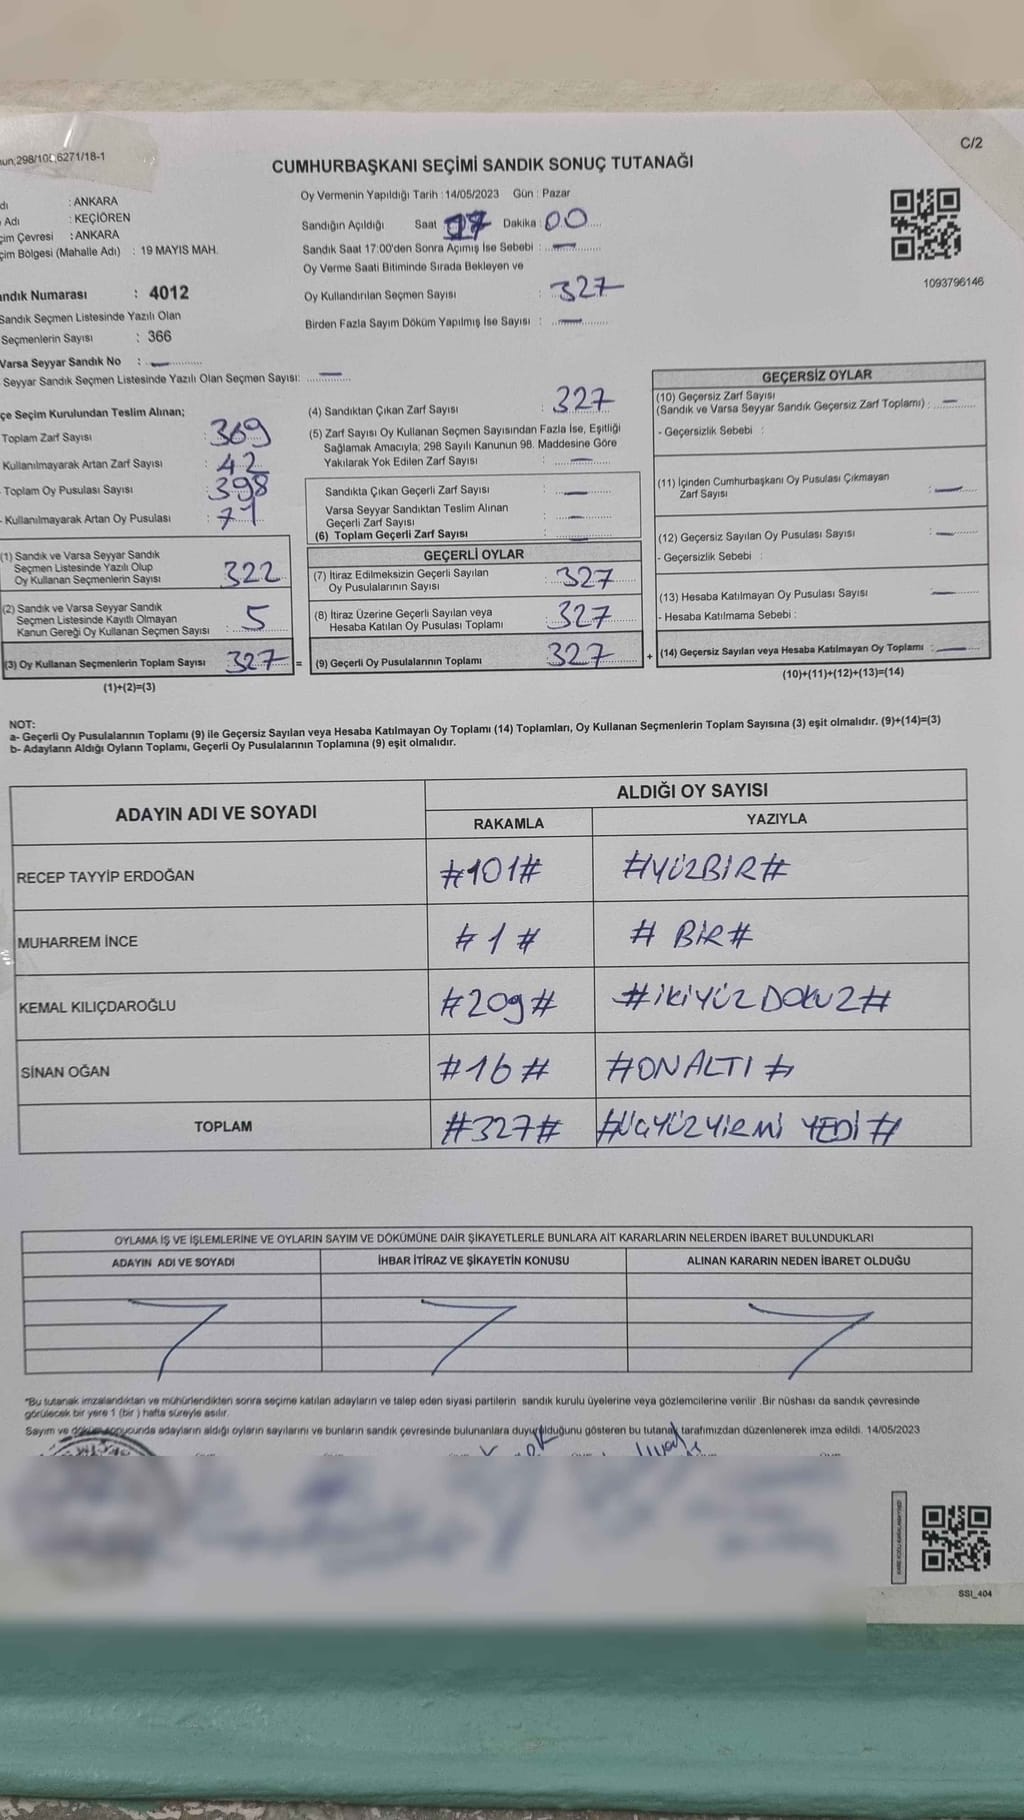 298/10 6271/18-1
C/2
CUMHURBAŞKANI SEÇİMİ SANDIK SONUÇ TUTANAĞI
: ANKARA
Adı : KEÇİÖREN
çim Çevresi : ANKARA
çim Bölgesi (Mahalle Adı) : 19 MAYIS MAH.
andık Numarası : 4012
Sandık Seçmen Listesinde Yazılı Olan
Seçmenlerin Sayısı : 366
Varsa Seyyar Sandık No : —
Seyyar Sandık Seçmen Listesinde Yazılı Olan Seçmen Sayısı: —
Oy Vermenin Yapıldığı Tarih : 14/05/2023 Gün : Pazar
Sandığın Açıldığı Saat 17 Dakika : 00
Sandık Saat 17:00'den Sonra Açımış İse Sebebi : —
Oy Verme Saati Bitiminde Sırada Bekleyen ve
Oy Kullandırılan Seçmen Sayısı : 327
Birden Fazla Sayım Döküm Yapılmış İse Sayısı : —
1093796146
çe Seçim Kurulundan Teslim Alınan;
Toplam Zarf Sayısı : 369
Kullanılmayarak Artan Zarf Sayısı : 42
Toplam Oy Pusulası Sayısı : 398
- Kullanılmayarak Artan Oy Pusulası : 71
(1) Sandık ve Varsa Seyyar Sandık
Seçmen Listesinde Yazılı Olup
Oy Kullanan Seçmenlerin Sayısı 322
(2) Sandık ve Varsa Seyyar Sandık
Seçmen Listesinde Kayıtlı Olmayan
Kanun Gereği Oy Kullanan Seçmen Sayısı : 5
(3) Oy Kullanan Seçmenlerin Toplam Sayısı 327 =
(1)+(2)=(3)
(4) Sandıktan Çıkan Zarf Sayısı : 327
(5) Zarf Sayısı Oy Kullanan Seçmen Sayısından Fazla İse, Eşitliği
Sağlamak Amacıyla; 298 Sayılı Kanunun 98. Maddesine Göre
Yakılarak Yok Edilen Zarf Sayısı : —
Sandıkta Çıkan Geçerli Zarf Sayısı : —
Varsa Seyyar Sandıktan Teslim Alınan
Geçerli Zarf Sayısı : —
(6) Toplam Geçerli Zarf Sayısı : —
GEÇERLİ OYLAR
(7) İtiraz Edilmeksizin Geçerli Sayılan
Oy Pusulalarının Sayısı : 327
(8) İtiraz Üzerine Geçerli Sayılan veya
Hesaba Katılan Oy Pusulası Toplamı : 327
(9) Geçerli Oy Pusulalarının Toplamı 327 +
GEÇERSİZ OYLAR
(10) Geçersiz Zarf Sayısı
(Sandık ve Varsa Seyyar Sandık Geçersiz Zarf Toplamı) : —
- Geçersizlik Sebebi :
(11) İçinden Cumhurbaşkanı Oy Pusulası Çıkmayan
Zarf Sayısı : —
(12) Geçersiz Sayılan Oy Pusulası Sayısı : —
- Geçersizlik Sebebi :
(13) Hesaba Katılmayan Oy Pusulası Sayısı : —
- Hesaba Katılmama Sebebi :
(14) Geçersiz Sayılan veya Hesaba Katılmayan Oy Toplamı : —
(10)+(11)+(12)+(13)=(14)
NOT:
a- Geçerli Oy Pusulalarının Toplamı (9) ile Geçersiz Sayılan veya Hesaba Katılmayan Oy Toplamı (14) Toplamları, Oy Kullanan Seçmenlerin Toplam Sayısına (3) eşit olmalıdır. (9)+(14)=(3)
b- Adayların Aldığı Oyların Toplamı, Geçerli Oy Pusulalarının Toplamına (9) eşit olmalıdır.
ADAYIN ADI VE SOYADI ALDIĞI OY SAYISI
RAKAMLA YAZIYLA
RECEP TAYYİP ERDOĞAN #101# #YÜZBİR#
MUHARREM İNCE #1# #BİR#
KEMAL KILIÇDAROĞLU #209# #İKİYÜZ DOKUZ#
SİNAN OĞAN #16# #ONALTI#
TOPLAM #327# #ÜÇYÜZYİRMİ YEDİ#
OYLAMA İŞ VE İŞLEMLERİNE VE OYLARIN SAYIM VE DÖKÜMÜNE DAİR ŞİKAYETLERLE BUNLARA AİT KARARLARIN NELERDEN İBARET BULUNDUKLARI
ADAYIN ADI VE SOYADI İHBAR İTİRAZ VE ŞİKAYETİN KONUSU ALINAN KARARIN NEDEN İBARET OLDUĞU
*Bu tutanak imzalandıktan ve mühürlendikten sonra seçime katılan adayların ve talep eden siyasi partilerin sandık kurulu üyelerine veya gözlemcilerine verilir .Bir nüshası da sandık çevresinde
görülecek bir yere 1 (bir ) hafta süreyle asılır.
Sayım ve döküm sonucunda adayların aldığı oyların sayılarını ve bunların sandık çevresinde bulunanlara duyurulduğunu gösteren bu tutanak tarafımızdan düzenlenerek imza edildi. 14/05/2023
SSI_404